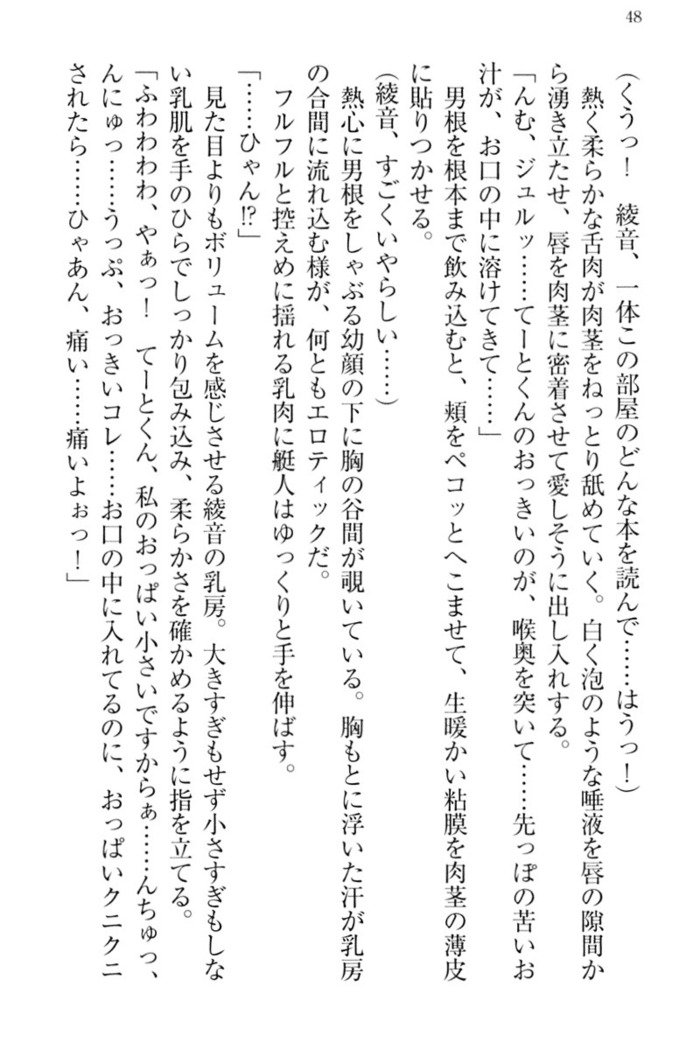 48
(くうっ！　綾音、一体この部屋のどんな本を読んで……はうっ！)
熱く柔らかな舌肉が肉茎をねっとり舐めていく。白く泡のような唾液を唇の隙間か
ら湧き立たせ、唇を肉茎に密着させて愛しそうに出し入れする。
「んむ、ジュルッ……てーとくんのおっきいのが、喉奥を突いて……先っぽの苦いお
汁が、お口の中に溶けてきて……」
男根を根本まで飲み込むと、頬をペコッとへこませて、生暖かい粘膜を肉茎の薄皮
に貼りつかせる。
(綾音、すごくいやらしい……)
熱心に男根をしゃぶる幼顔の下に胸の谷間が覗いている。胸もとに浮いた汗が乳房
の合間に流れ込む様が、何ともエロティックだ。
フルフルと控えめに揺れる乳肉に艇人はゆっくりと手を伸ばす。
「……ひゃん!?」
見た目よりもボリュームを感じさせる綾音の乳房。大きすぎもせず小さすぎもしな
い乳肌を手のひらでしっかり包み込み、柔らかさを確かめるように指を立てる。
「ふわわわわ、やぁっ！　てーとくん、私のおっぱい小さいですからぁ……んちゅっ、
んにゅっ……うっぷ、おっきいコレ……お口の中に入れてるのに、おっぱいクニクニ
されたら……ひゃあん、痛い……痛いよぉっ！」